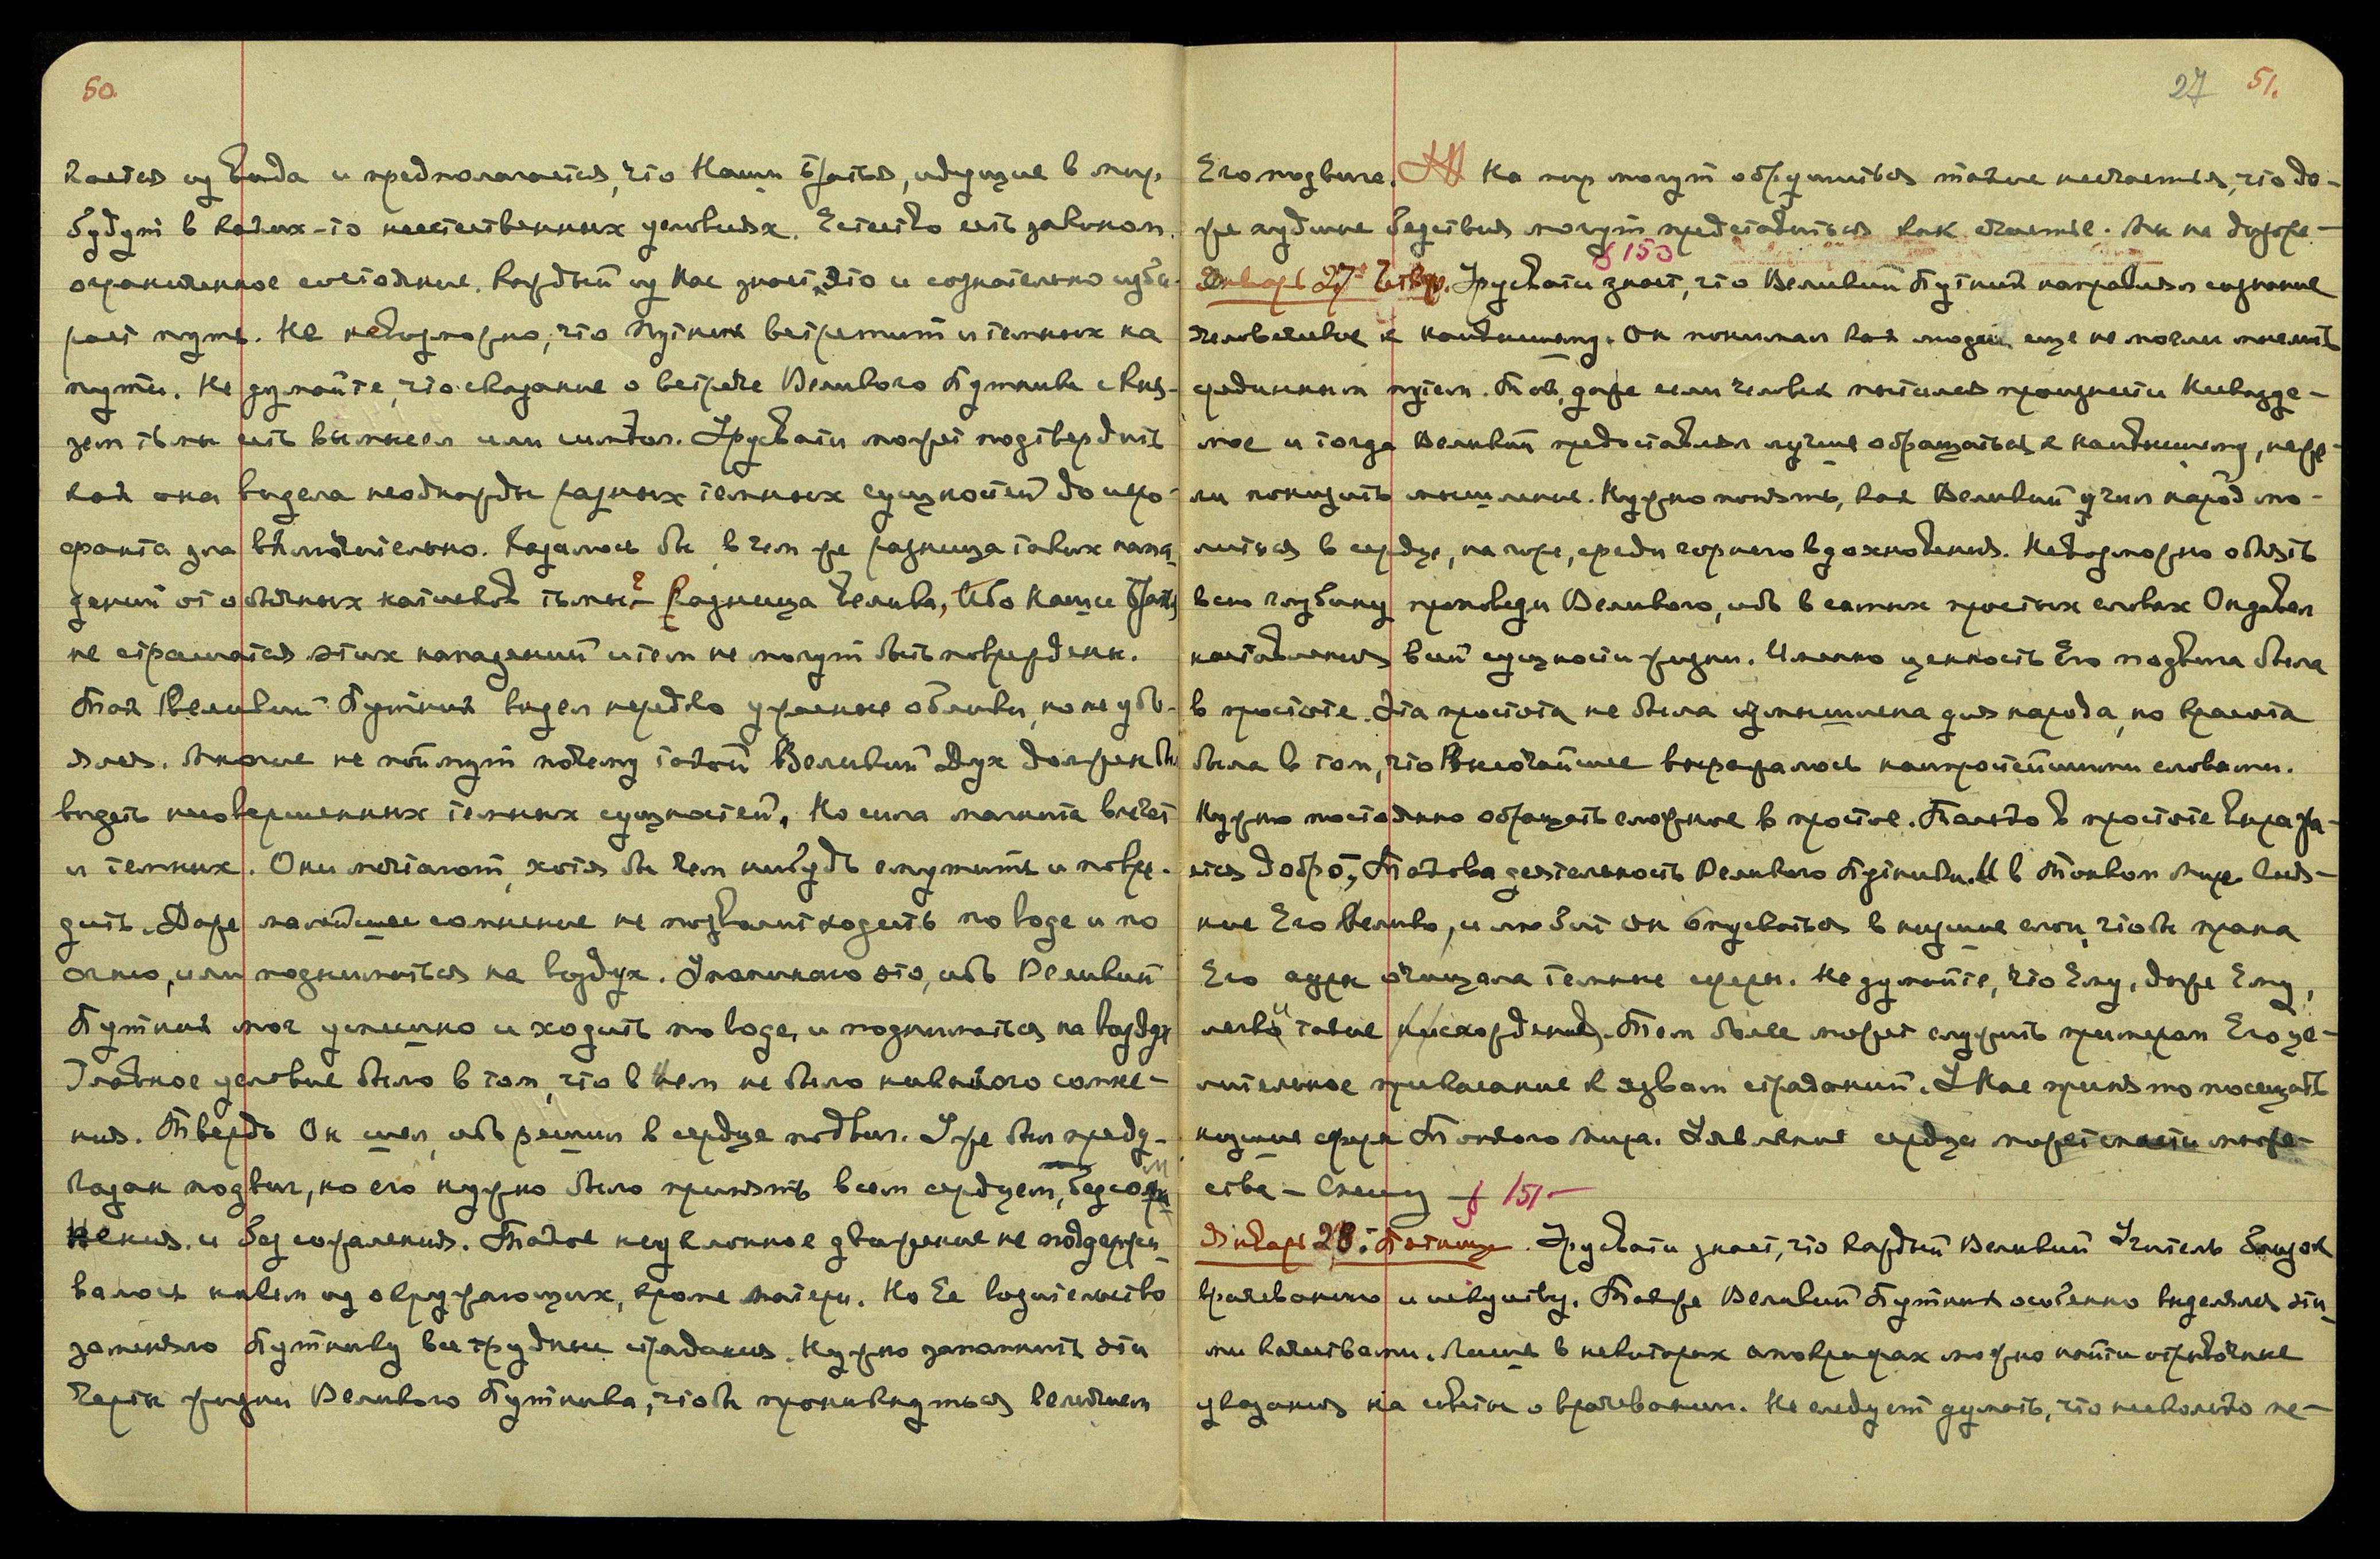 50.
кается из вида и предполагается, что Наши Братья, идущие в мир,
будут в каких-то неестественных условиях. Естество есть законом
ограниченное состояние. Каждый из Нас знает это и сознательно изби-
рает путь. Не невозможно, что Путник встретит и темных на
пути. Не думайте, что сказание о встрече Великого Путника с Кня-
зем тьмы есть вымысел или символ. Урусвати может подтвердить
как она видела неоднажды разных темных сущностей до иеро-
фанта зла включительно. Казалось бы, в чем же разница таких напа-
дений от обычных натисков тьмы? – Разница велика, ибо Наши Братья
не страшатся этих нападений и тем не могут быть повреждены.
Так Великий Путник видел нередко ужасные облики, но не убо-
ялся. Многие не поймут почему такой Великий Дух должен был
видеть несовершенных темных сущностей. Но сила магнита влечет
и темных. Они мечтают, хотя бы чем нибудь смутить и повре-
дить. Даже малейшее сомнение не позволит ходить по воде и по
огню, или подниматься на воздух. Упоминаю это, ибо Великий
Путник мог успешно и ходить по воде, и подниматься на воздух
Главное условие было в том, что в Нем не было никакого сомне-
ния. Твердо Он шел, ибо решил в сердце подвиг. Уже был преду-
казан подвиг, но его нужно было принять всем сердцем, без сом-
нения и без сожаления. Такое неуклонное движение не поддержи-
валось никем из окружающих, кроме Матери. Но Ее водительство
заменяло Путнику все трудные страдания. Нужно запомнить эти
черты жизни Великого Путника, чтобы проникнуться величием
27 51.
Его подвига. На мир могут обрушиться такие несчастья, что да-
же худшие бедствия могут представиться как счастье. Мы не дозре-
§ 150
Январь 27е Четвер. Урусвати знает, что Великий Путник направлял сознание
человеческое к наивысшему. Он понимал как люди еще не могли мыслить
срединным путем. Так, даже если человек пытался произнести Ниваздe-
мое и тогда Великий предоставлял лучше обращаться к наивысшему, неже-
ли понизить мышление. Нужно понять, как Великий учил народ мо-
литься в сердце, на горе, среди горнего вдохновения. Невозможно объять
всю глубину проповеди Великого, ибо в самых простых словах Он давал
наставления всей сущности жизни. Именно ценность Его подвига была
в простоте. Эта простота не была измышлена для народа, но красота
была в том, что Высочайшее выражалось наипростейшими словами.
Нужно постоянно обращать сложное в простое. Только в простоте выража-
ется добро. Такова деятельность Великого Путника. И в Тонком Мире влия-
ние Его велико, и любит Он опускаться в низшие слои, чтобы прана
Его ауры очищала темные сферы. Не думайте, что Ему, даже Ему,
легко такие нисхождения. Тем более может служить примером Его це-
лительное прикасание к язвам страданий. У Нас принято посещать
низшие сферы Тонкого Мира. Уявление сердца может спасти множе-
ства – Спешу § 151 –
Январь 28. Пятница. Урусвати знает, что каждый Великий Учитель близок
врачеванию и искусству. Также Великий Путник особенно выделялся эти-
ми качествами. Лишь в некоторых апокрифах можно найти отрывочные
указания на советы о врачевании. Не следует думать, что несколько не-